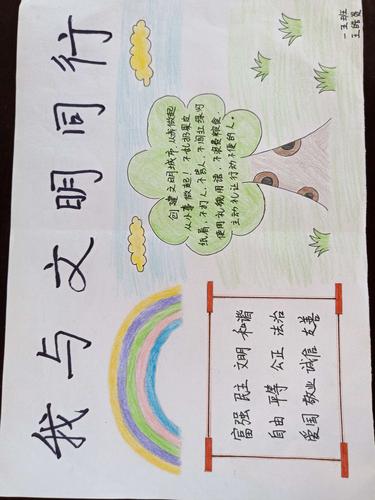 我与文明同行
一五班
创建文明城市,从我做起
从小事做起!不乱扔果皮
纸屑,不打人、不骂人、不闯红绿灯
使用礼貌用语,不浪费粮食,
主动礼让行动不便的人。
富强 民主 文明 和谐
自由 平等 公正 法治
爱国 敬业 诚信 友善